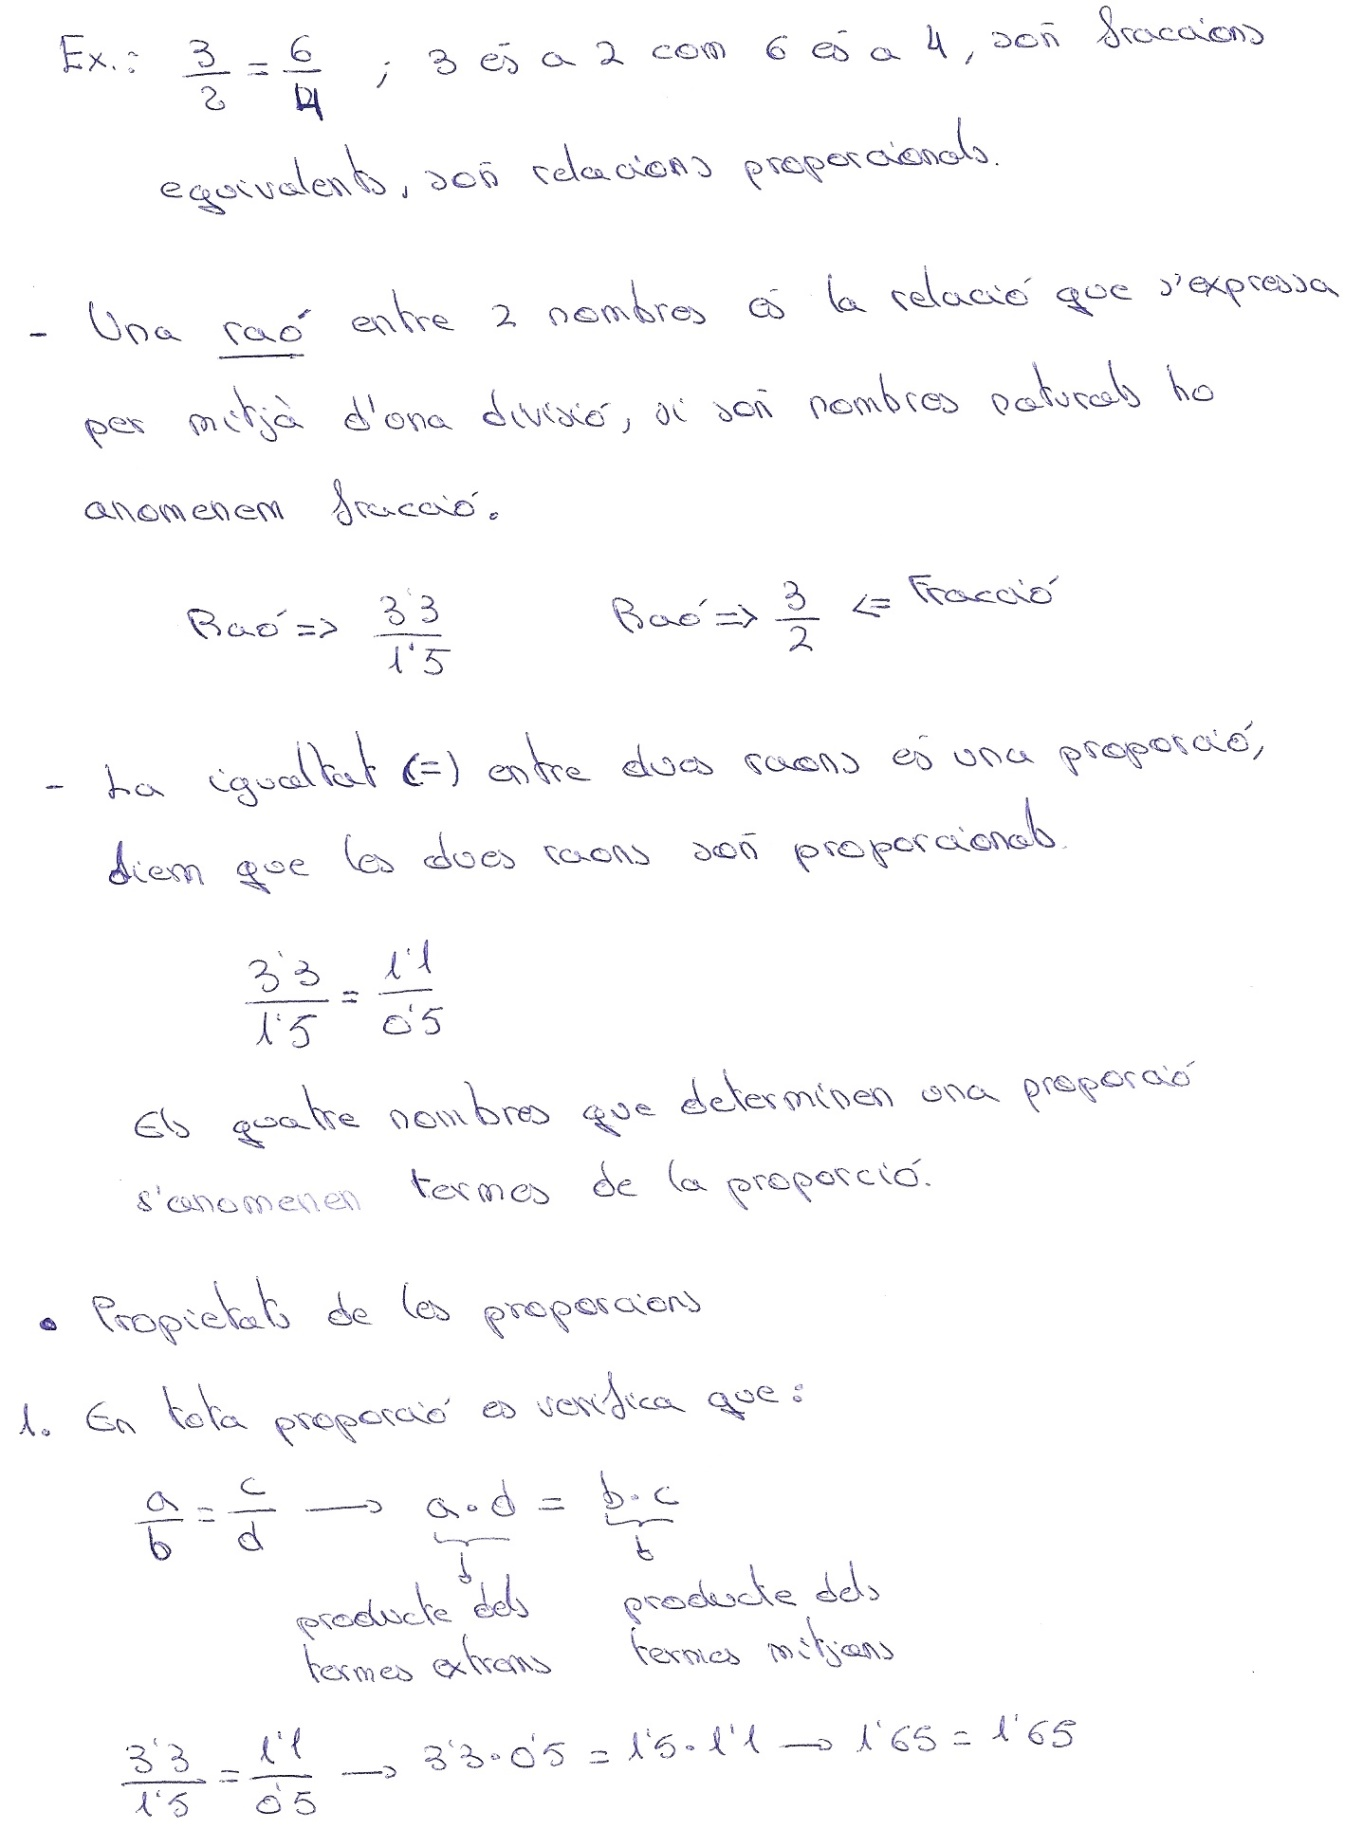 Ex.: 3/2 = 6/4 ; 3 és a 2 com 6 és a 4, són fraccions
equivalents, són relacions proporcionals.
- Una raó entre 2 nombres és la relació que s'expressa
per mitjà d'una divisió, si són nombres naturals ho
anomenem fracció.
Raó => 3'3/1'5 Raó => 3/2 <= Fracció
- La igualtat (=) entre dues raons és una proporció,
diem que les dues raons són proporcionals.
3'3/1'5 = 1'1/0'5
Els quatre nombres que determinen una proporció
s'anomenen termes de la proporció.
• Propietats de les proporcions
1. En tota proporció es verifica que:
a/b = c/d → a·d = b·c
producte dels producte dels
termes extrems termes mitjans
3'3/1'5 = 1'1/0'5 → 3'3·0'5 = 1'5·1'1 → 1'65 = 1'65